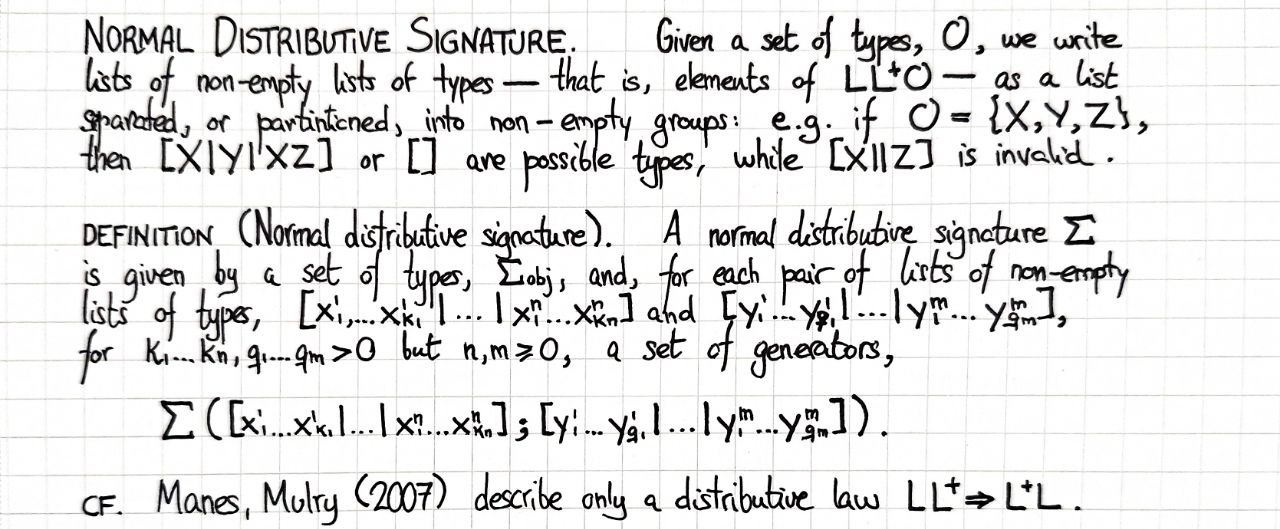 NORMAL DISTRIBUTIVE SIGNATURE. Given a set of types, O, we write
lists of non-empty lists of types — that is, elements of LL⁺O — as a list
sparated, or partinticned, into non-empty groups: e.g. if O = {X,Y,Z},
then [X|Y|XZ] or [] are possible types, while [X||Z] is invalid.
DEFINITION (Normal distributive signature). A normal distributive signature Σ
is given by a set of types, Σobj, and, for each pair of lists of non-empty
lists of types, [x¹₁,...x¹ₖ₁|...|xⁿ₁...xⁿₖₙ] and [y¹₁...y¹q₁|...|yᵐ₁...yᵐqₘ],
for k₁...kₙ, q₁...qₘ>0 but n,m⩾0, a set of generators,
Σ([x¹₁...x¹ₖ₁|...|xⁿ₁...xⁿₖₙ];[y¹₁...y¹q₁|...|yᵐ₁...yᵐqₘ]).
CF. Manes, Mulry (2007) describe only a distributive law LL⁺⇒L⁺L.